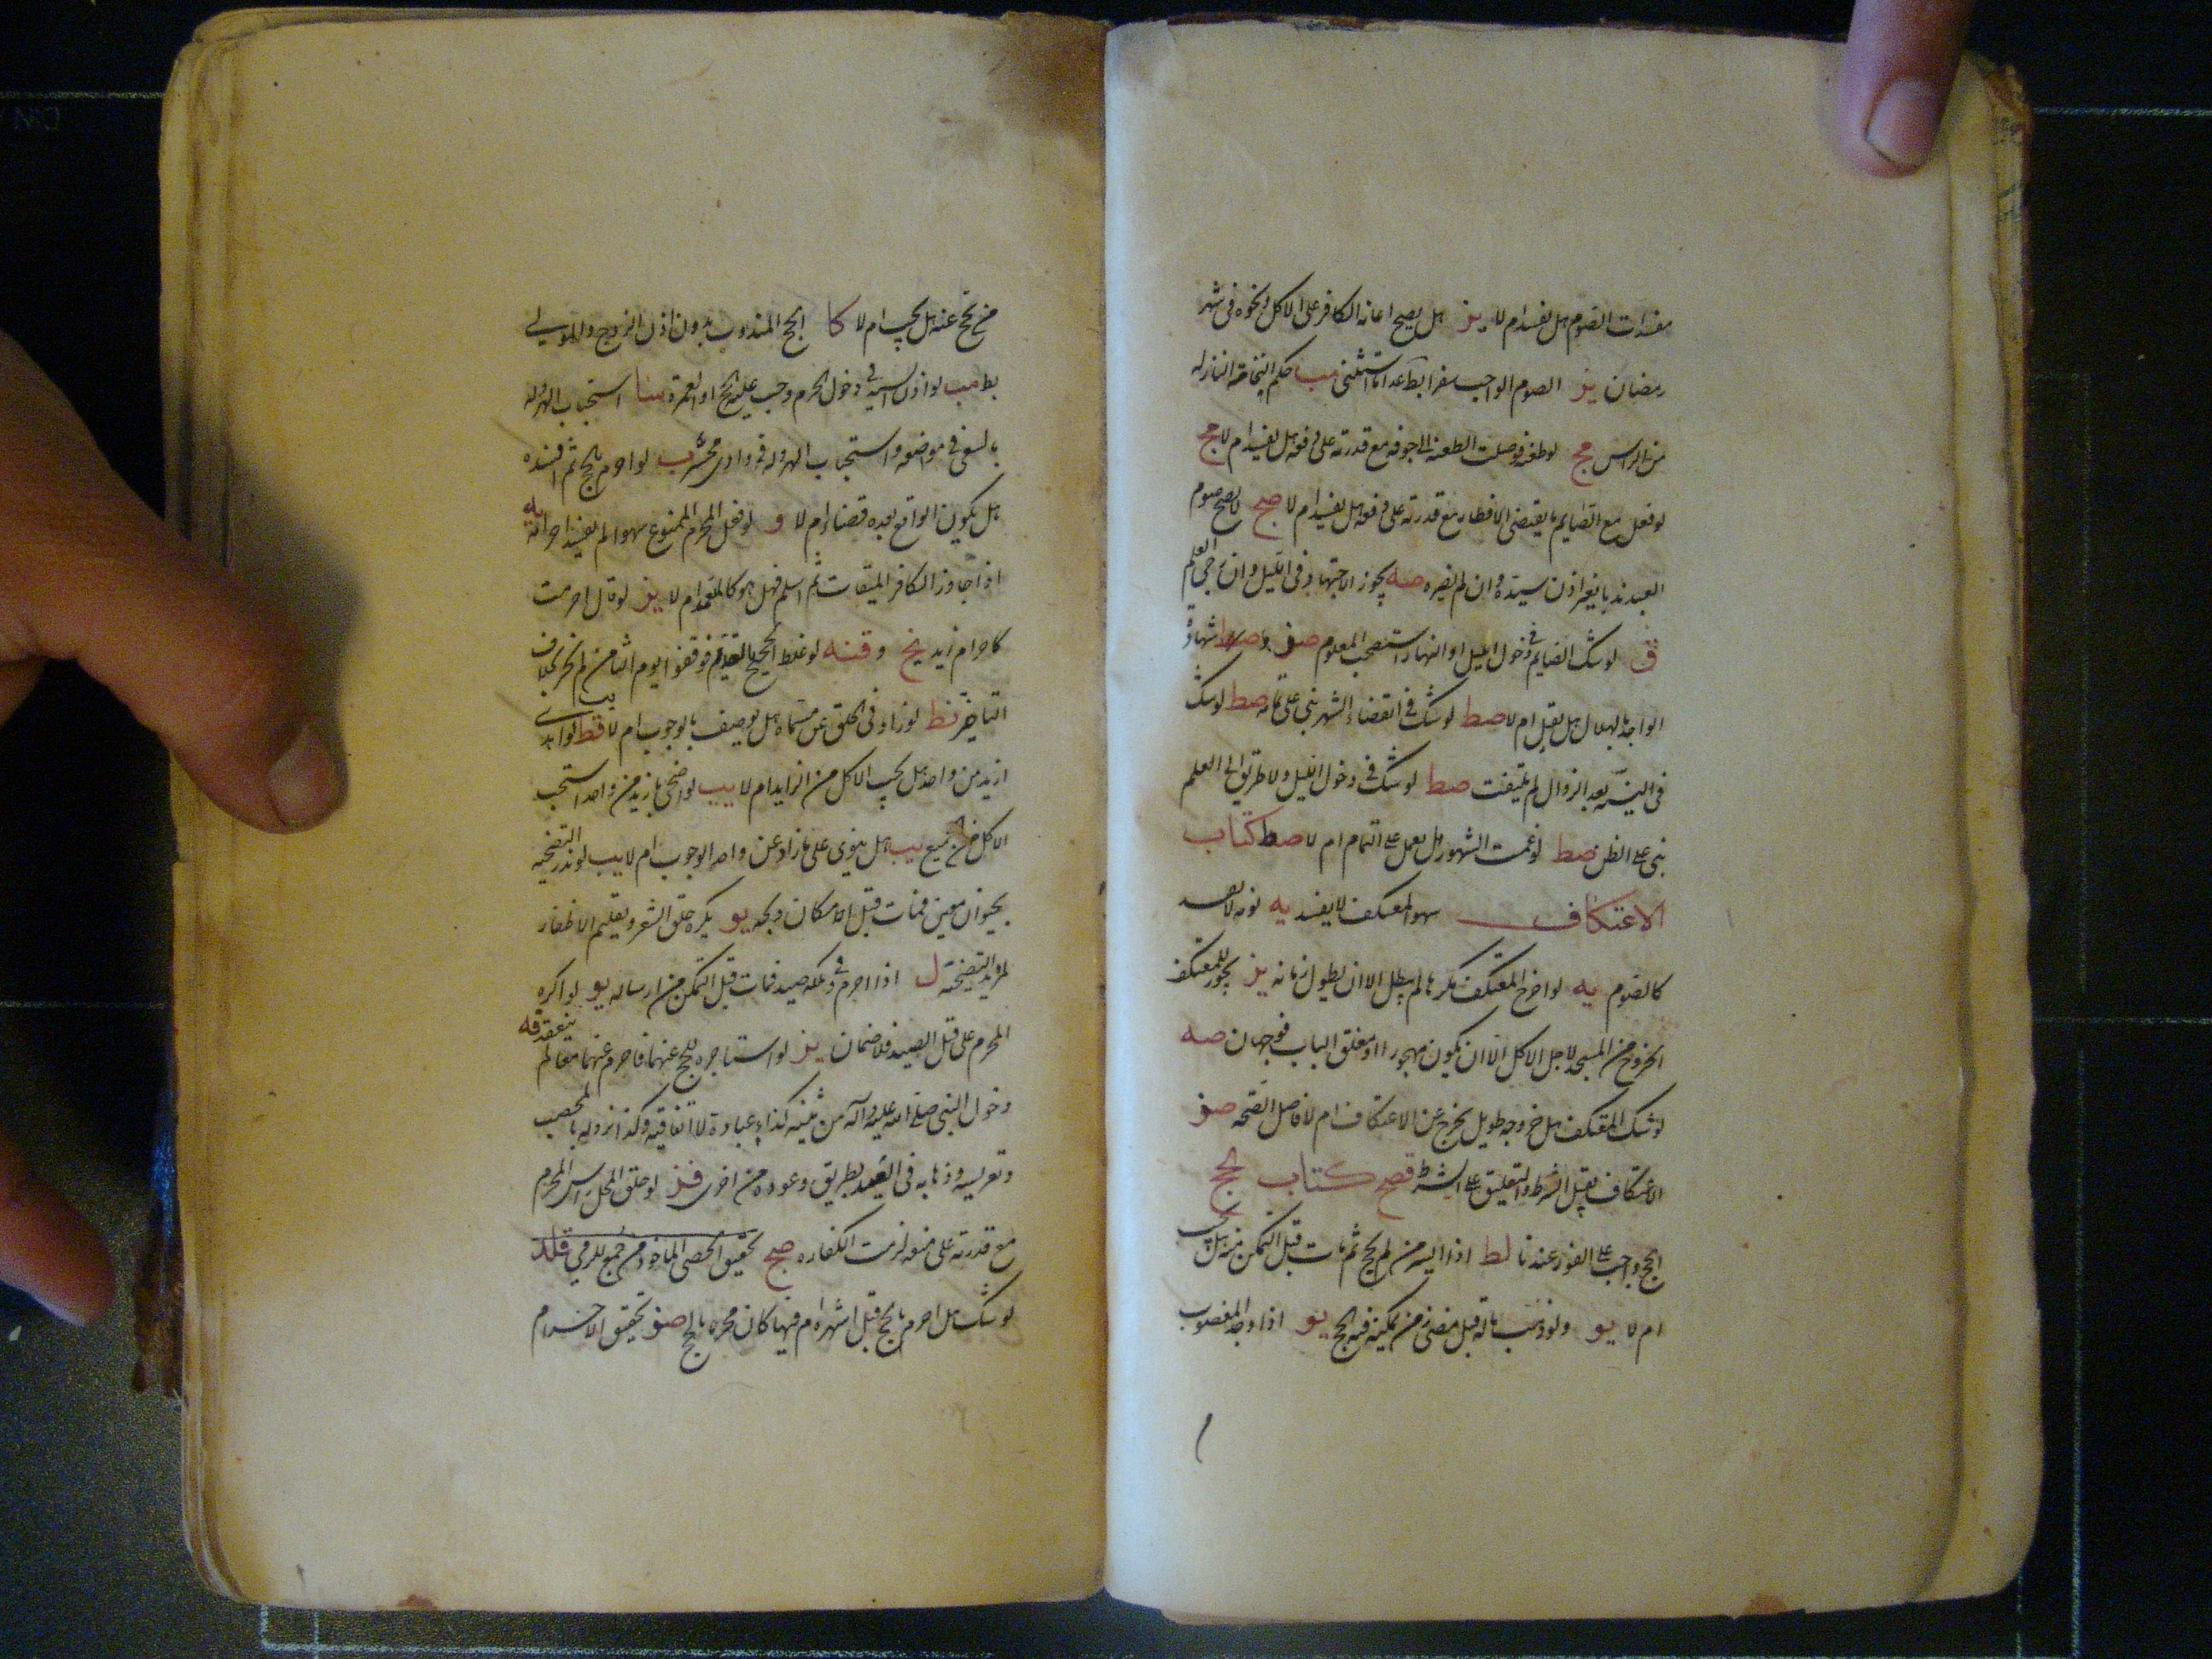 مفسدات الصوم هل يفسد ام لا يز هل يصح اعانة الكافر على الاكل ونحوه فى شهر
رمضان يز الصوم الواجب سفرا عدا ما استثنى مب حكم النخامة النازلة
من الراس مج لو طعنه فوصلت الطعنة الى جوفه مع قدرته على دفعه هل يفسد ام لا مج
لو فعل مع الصايم ما يقتضى الافطار مع قدرته على دفعه هل يفسد ام لا صح لا يصح صوم
العبد ندبا بغير اذن سيده وان لم يضره صه يجوز الاجتهاد فى الليل وان رجى العلم
ق لو شك الصايم فى دخول الليل او النهار استصحب المعلوم صو شهادة
الواحد بالهلال هل يقبل ام لا صط لو شك فى انقضاء الشهر بنى على تمامه صط لو شك
فى النية بعد الزوال لم يلتفت صط لو شك فى دخول الليل ولا طريق الى العلم
بنى على الظن صط لو غمت الشهور هل يعمل على التمام ام لا صط كتاب
الاعتكاف سهو المعتكف لا يفسد يه
كالصوم يه لو اخرج المعتكف مكرها لم يبطل الا ان يطول زمانه يز يجوز للمعتكف
الخروج من المسجد لاجل الاكل الا ان يكون مهجورا او مغلق الباب فوجهان صه
لو شك المعتكف هل خروجه طويل يخرج عن الاعتكاف ام لا فاصل الصحة صو
الاعتكاف يقبل الشرط والتعليق على الشرط قصح كتاب الحج
الحج واجب على الفور عندنا لط اذا ايسر من لم يحج ثم مات قبل التمكن منه هل يجب
ام لا يو ولو ذهب ماله قبل مضى زمن يمكنه فيه الحج يو اذا وجد المعضوب
من يحج عنه هل يجب ام لا كا الحج المندوب بدون اذن الزوج والمولى
مب لو اذن السيد فى دخول الحرم وجب عليه الحج او العمرة سا استحباب الهرولة
بالسعى فى موضعه واستحباب الهرولة فى وادى محسر ب لو احرم بالحج ثم افسده
هل يكون الواقع بعده قضاء ام لا و لو فعل المحرم الممنوع سهوا لم يفسد احرامه يه
اذا جاوز الكافر الميقات ثم اسلم فهل هو كالمتعمد ام لا يز لو قال احرمت
كاحرام زيد يح و قنه لو غلط الحجيج بالتقديم فوقفوا يوم الثامن لم يجز بخلاف
التاخير لو زاد فى الحلق عن مسماه هل يوصف بالوجوب ام لا قط لو اهدى
ازيد من واحد هل يجب الاكل من الزايد ام لا يب لو ضحى بازيد من واحد استحب
الاكل من الجميع يب هل ينوى على ما زاد عن واحد الوجوب ام لا يب لو نذر التضحية
بحيوان معين فمات قبل الامكان يو يكره حلق الشعر وتقليم الاظفار
لمريد التضحية ل اذا احرم وفى ملكه صيد فمات قبل التمكن من ارساله يو لو اكره
المحرم على قتل الصيد فلا ضمان يز لو استاجره للحج عنهما فاحرم عنهما معا لم ينعقد قه
دخول النبى صلى الله عليه وآله من ثنية كداء عبادة لا اتفاقية وكذا نزوله بالمحصب
وتعريسه وذهابه فى العيد بطريق وعوده من اخرى فز لو حلق المحل راس المحرم
مع قدرته على منعه لزمت الكفارة صح تحقيق الحصى الماخوذ من جمع للرمى قلد
لو شك هل احرم بالحج قبل اشهره ام فيها كان محرما بالحج صو تحقيق الاحرام